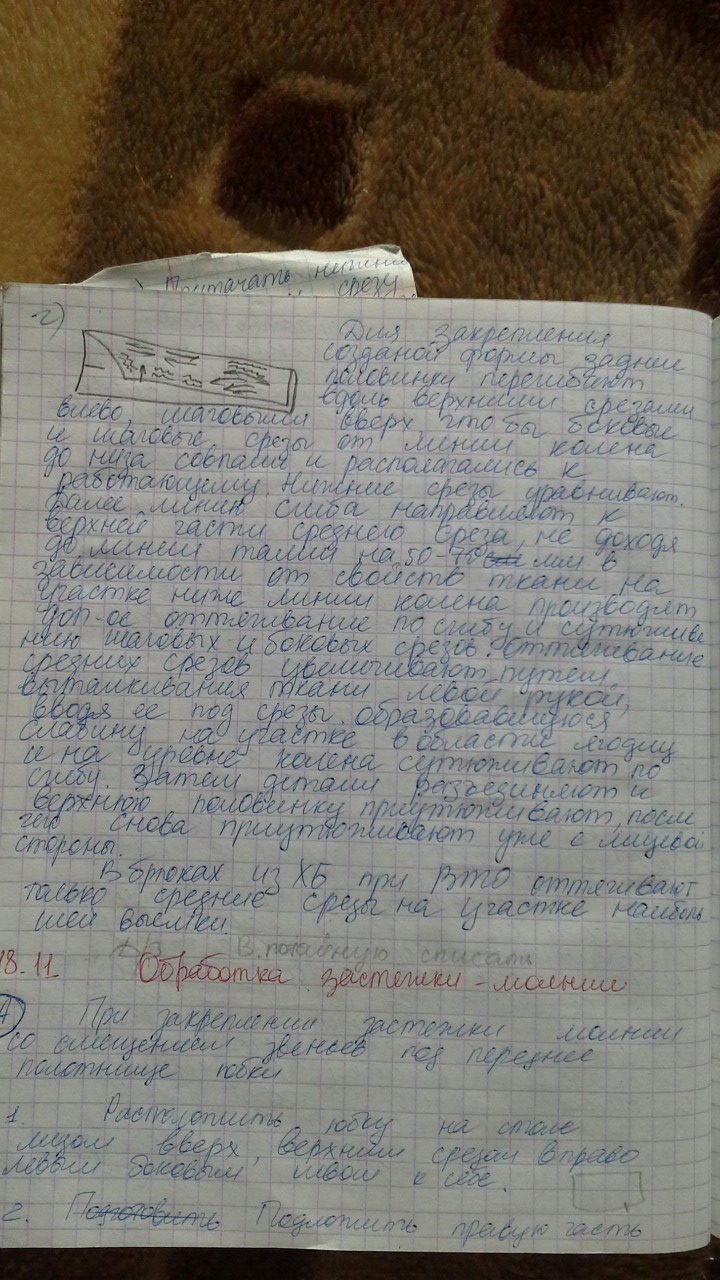 Притачать нижний
срезу
г)
Для закрепления
созданой формы задние
половинки перегибают
вдоль верхними срезами
влево, шаговыми вверх что бы боковые
и шаговые срезы от линии колена
до низа совпали и располагались к
работающему. Нижние срезы уравнивают.
Далее линию сгиба направляют к
верхней части среднего среза, не доходя
до линии талии на 50-70 мм в
зависимости от свойств ткани на
участке ниже линии колена производят
доп-ое оттягивание по сгибу и сутюжива
нию шаговых и боковых срезов. Оттягивание
средних срезов увеличивают путем
выталкивания ткани левой рукой,
вводя ее под срезы. образовавшуюся
слабину на участке в области ягодиц
и на уровне колена сутюживают по
сгибу. Затем детали разъединяют и
верхнюю половинку приутюживают, после
чего снова приутюживают уже с лицевой
стороны.
В брюках из ХБ при ВТО оттягивают
только средние срезы на участке наиболь
шей выемки.
Д/З В. потайную списать
18.11. Обработка застежки-молнии
А При закреплении застежки молнии
со смещением звеньев под переднее
полотнище юбки
1. Расположить юбку на столе
лицом вверх, верхним срезом вправо
левым боковым швом к себе.
2. Подготовить Подложить правую часть